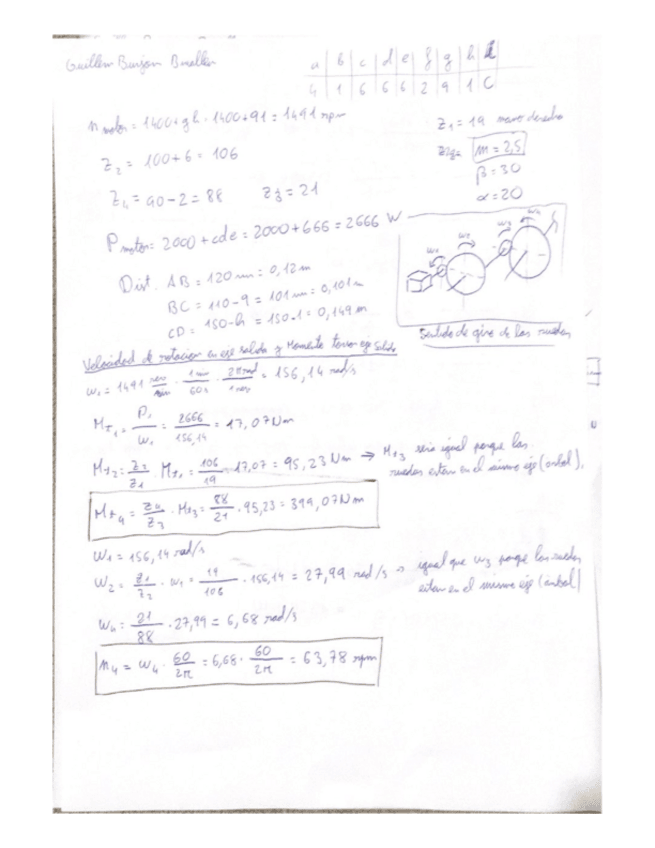 Guillem
a b c d e f g h
4 1 6 6 6 2 9 1 C
n motor = 1400 + gh = 1400 + 91 = 1491 rpm
Z1 = 19 mano derecha
Z2 = 100 + 6 = 106
m = 2,5
β = 30
Z4 = 90 - 2 = 88 Z3 = 21
α = 20
P motor = 2000 + cde = 2000 + 666 = 2666 W
Dist. AB = 120 mm = 0,12 m
BC = 110 - 9 = 101 mm = 0,101 m
CD = 150 - h = 150 - 1 = 0,149 m
Sentido de giro de las ruedas
Velocidad de rotacion en eje salida y Momento torsor eje salida
W1 = 1491 rev/min · 1 min/60 s · 2π rad/1 rev = 156,14 rad/s
Mt1 = P1/W1 = 2666/156,14 = 17,07 Nm
Mt2 = Z2/Z1 · Mt1 = 106/19 · 17,07 = 95,23 Nm → Mt3 seria igual porque las
ruedas estan en el mismo eje (arbol).
Mt4 = Z4/Z3 · Mt3 = 88/21 · 95,23 = 399,07 Nm
W1 = 156,14 rad/s
W2 = Z1/Z2 · W1 = 19/106 · 156,14 = 27,99 rad/s → igual que W3 porque las ruedas
estan en el mismo eje (arbol)
W4 = 21/88 · 27,99 = 6,68 rad/s
n4 = W4 · 60/2π = 6,68 · 60/2π = 63,78 rpm